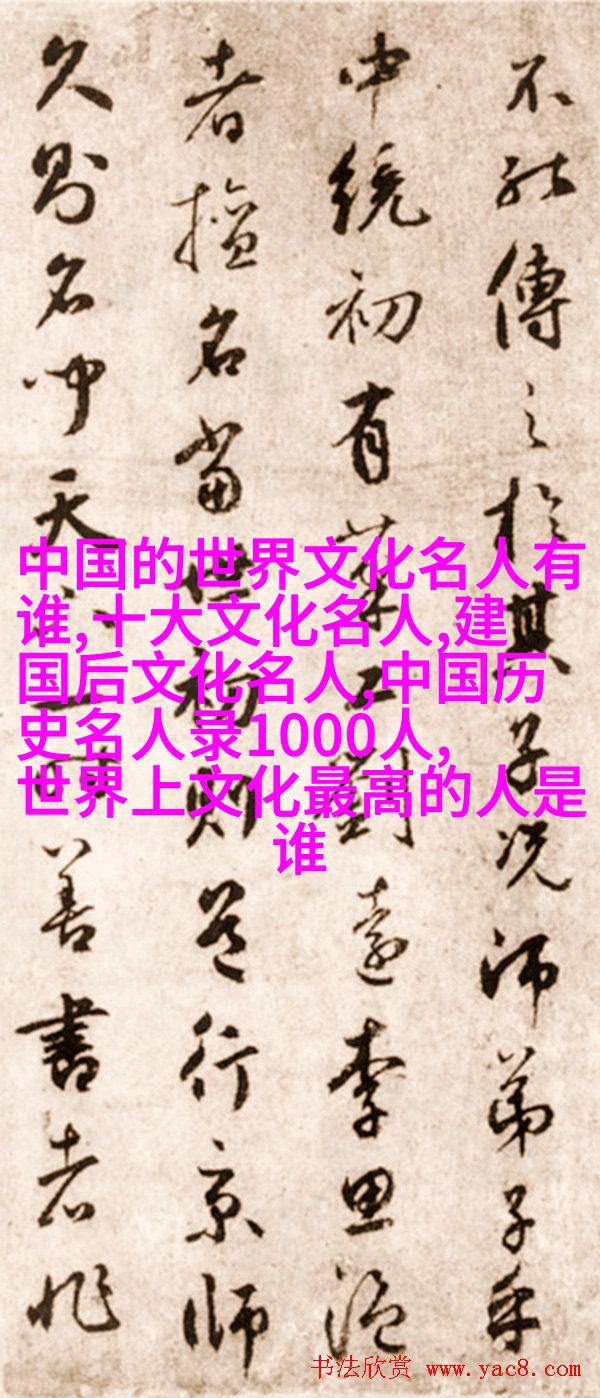 不能傳之於其子况師弟子乎
中統初有筆工劉遠李思温
者擅名當世初則行京師
久則名聞天下善書者非
中国的世界文化名人有
谁,十大文化名人,建
国后文化名人,中国历
史名人录1000人,
世界上文化最高的人是
谁
书法欣赏 www.yac8.com